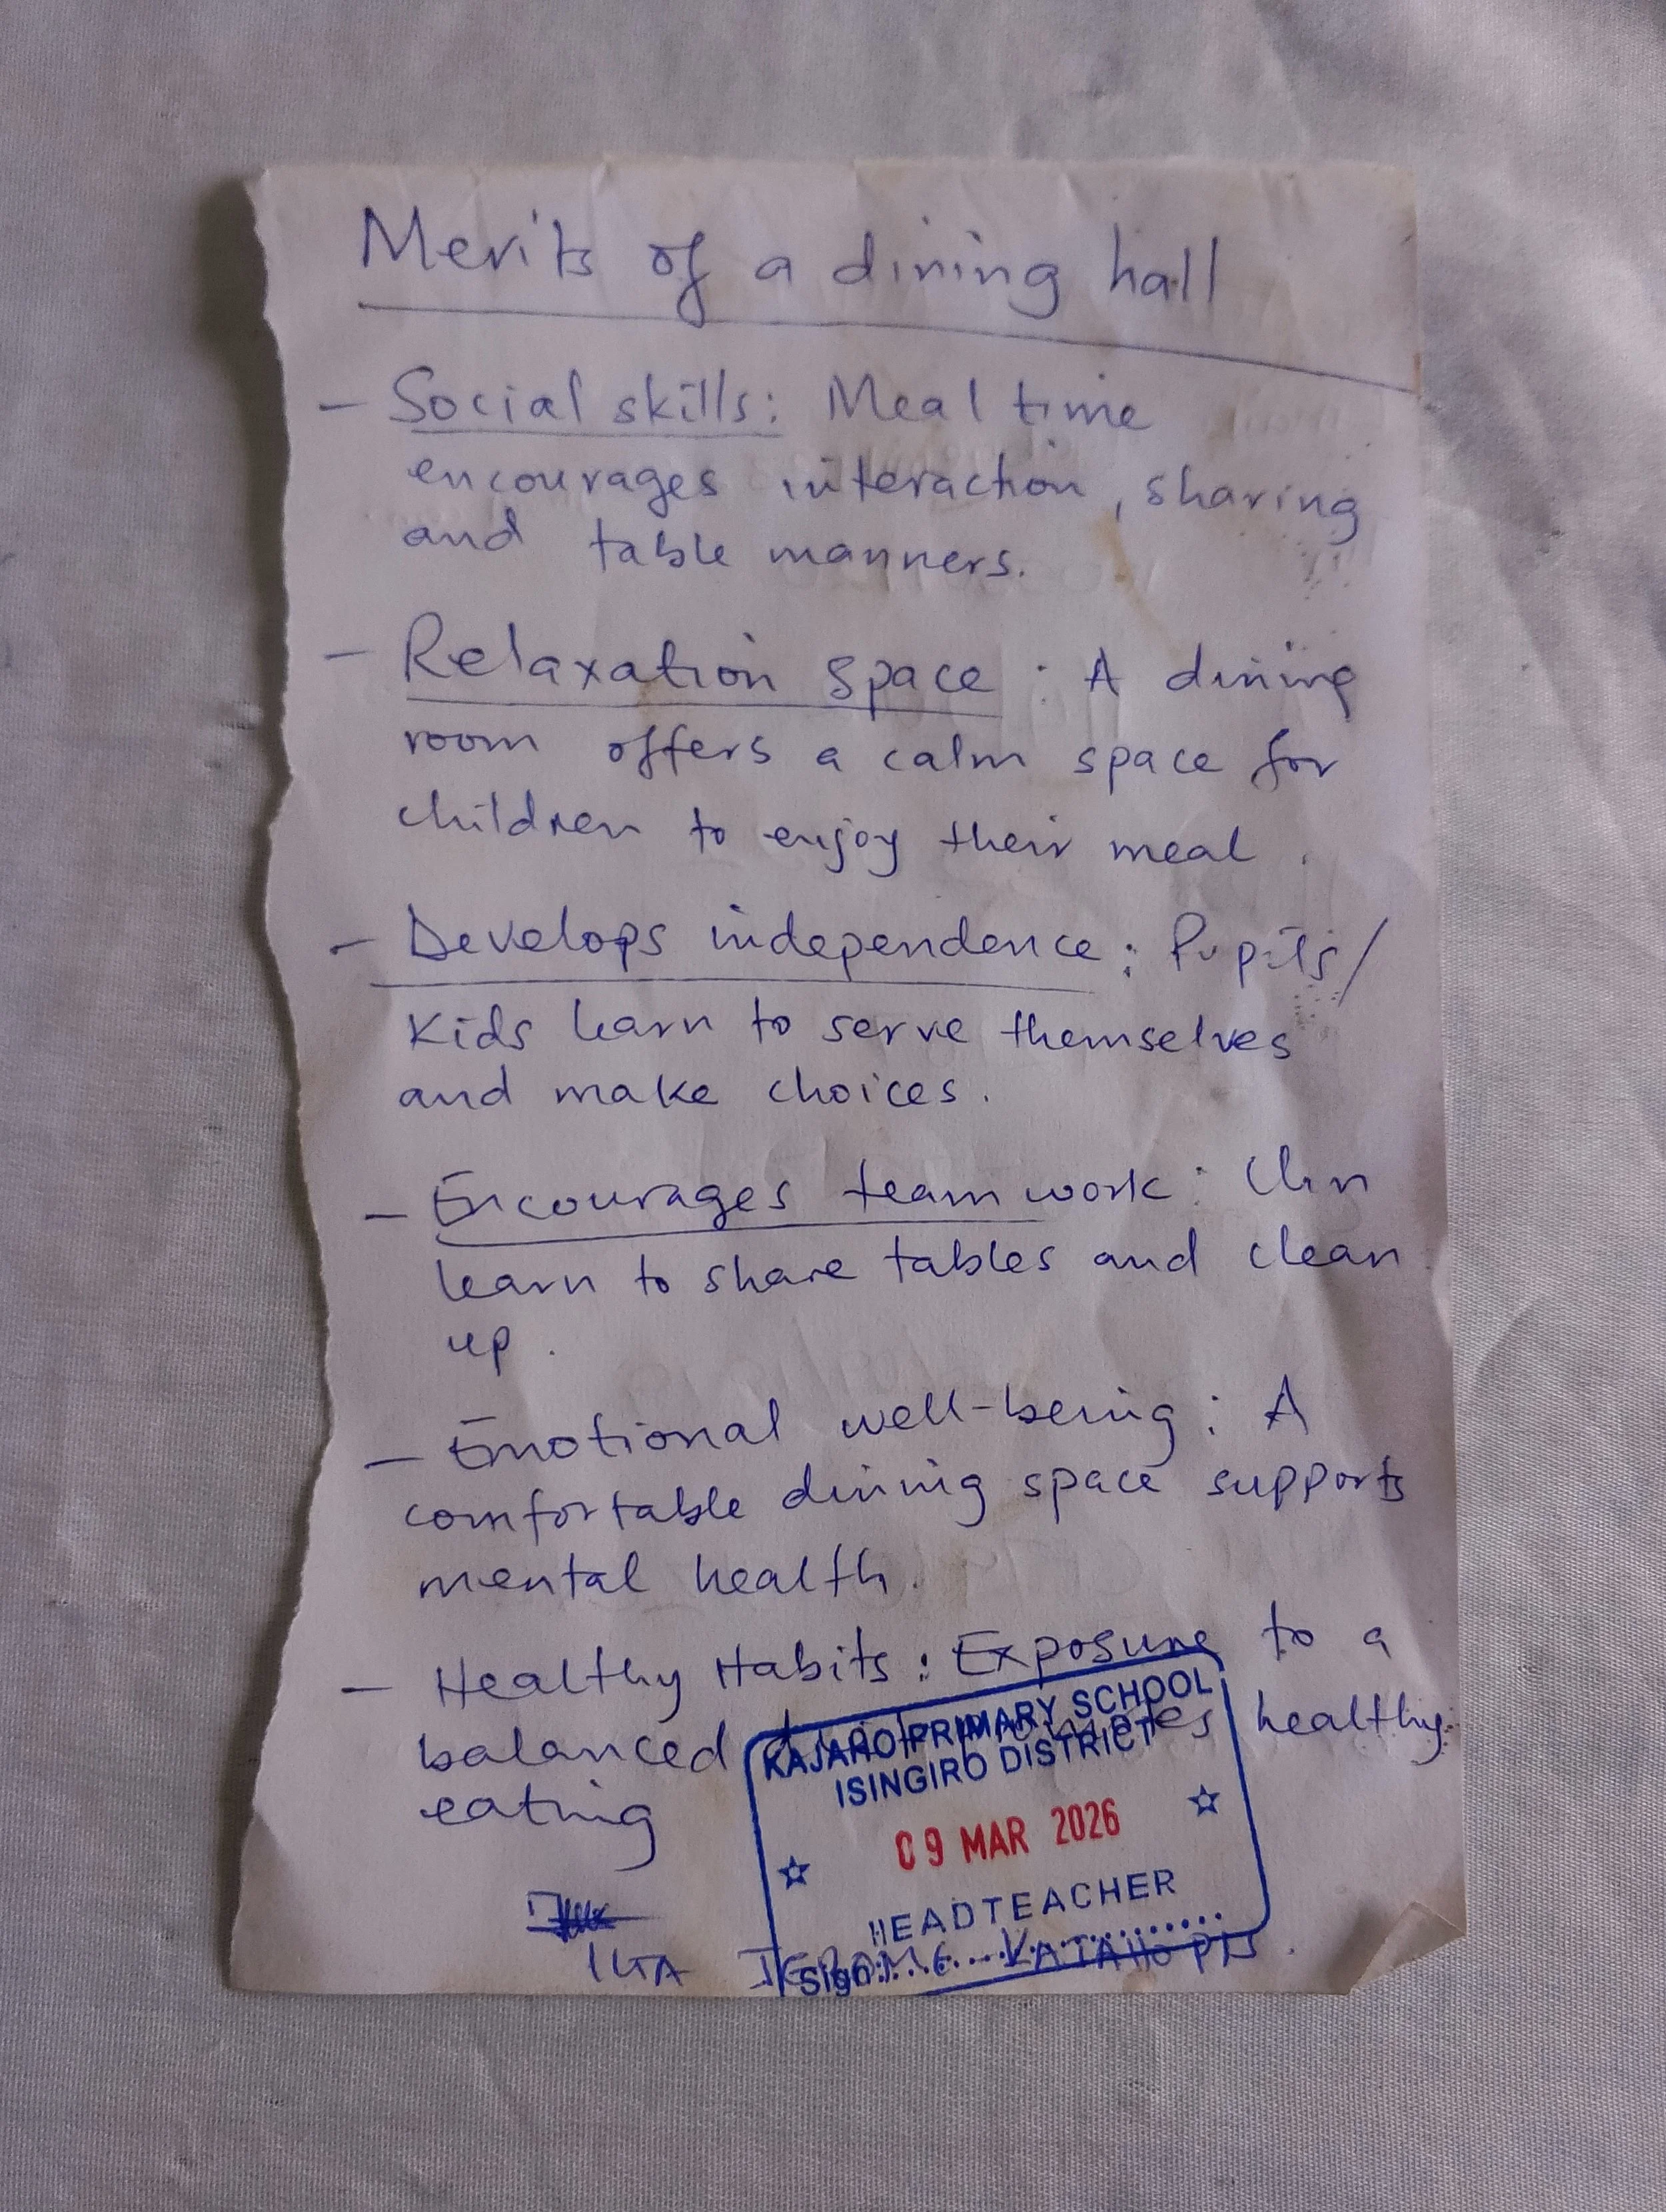 Merits of a dining hall
- Social skills: Meal time
encourages interaction, sharing
and table manners.
- Relaxation space: A dining
room offers a calm space for
children to enjoy their meal.
- Develops independence: Pupils/
Kids learn to serve themselves
and make choices.
- Encourages team work: Chn
learn to share tables and clean
up.
- Emotional well-being: A
comfortable dining space supports
mental health.
- Healthy Habits: Exposure to a
balanced promotes healthy
eating
KAJAHO PRIMARY SCHOOL
ISINGIRO DISTRICT
09 MAR 2026
HEADTEACHER
Sign:
JEROME